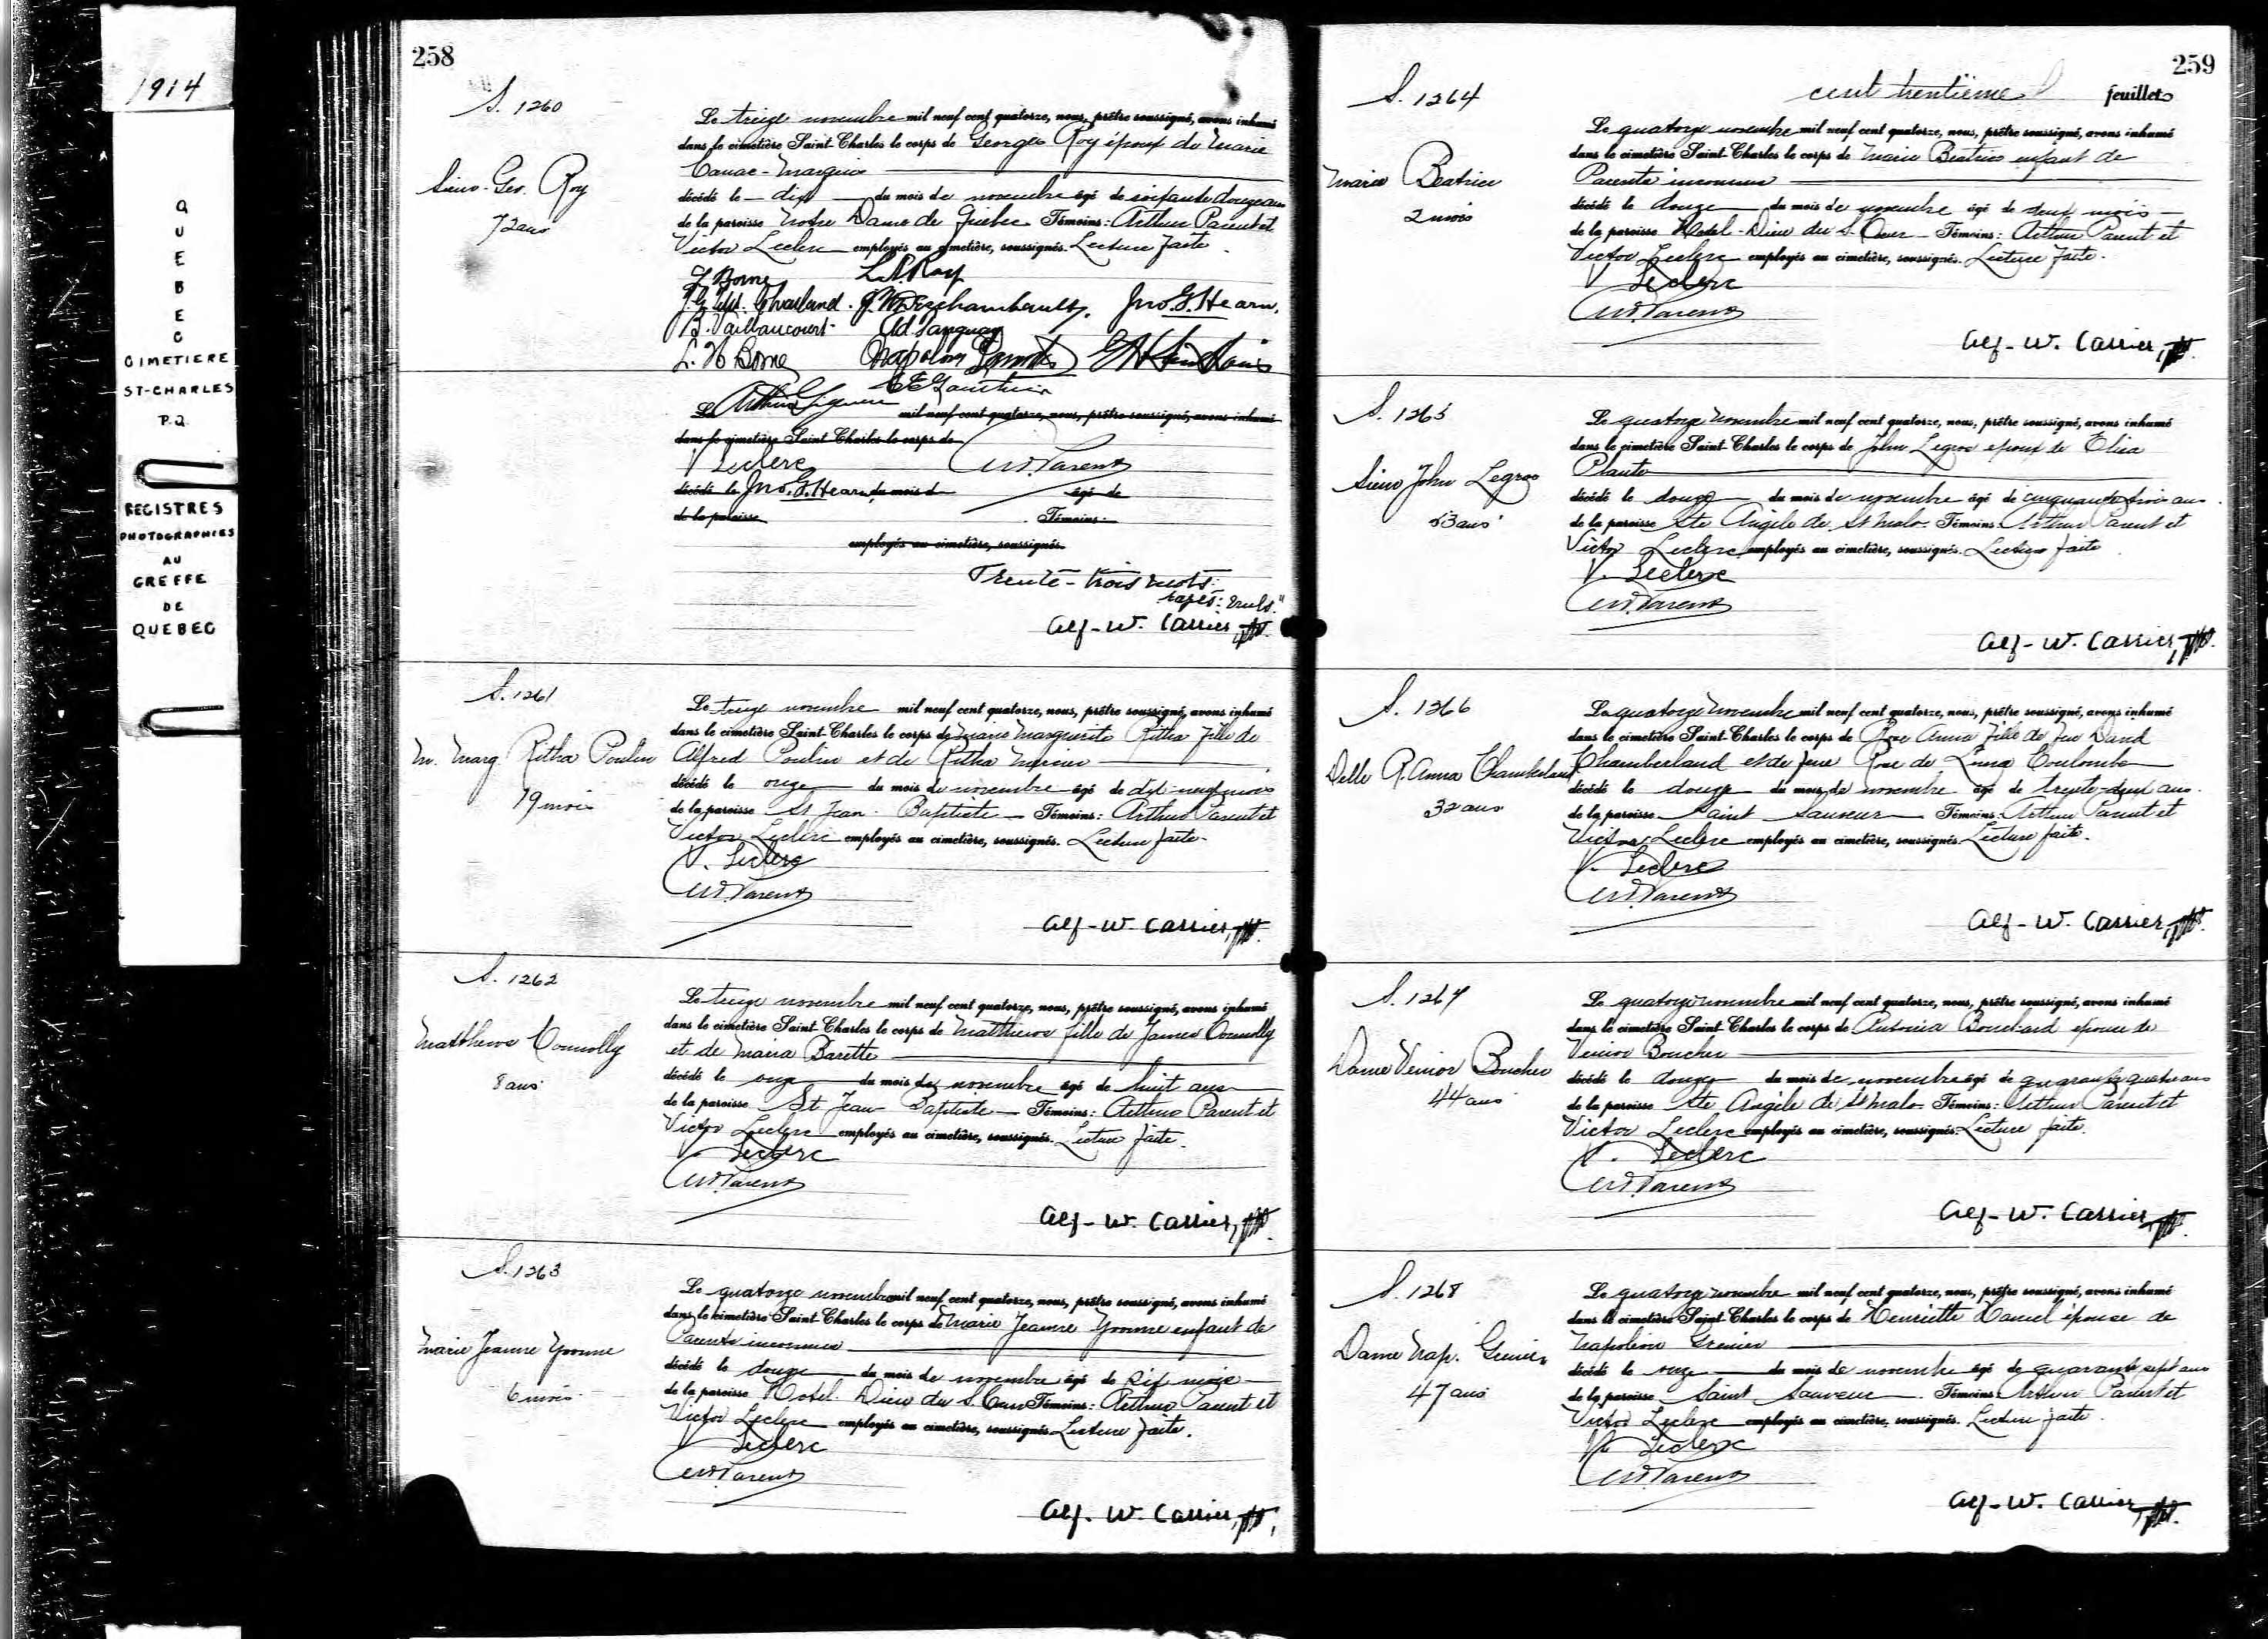 1914
QUEBEC
CIMETIERE
ST-CHARLES
P.Q.
REGISTRES
PHOTOGRAPHIES
AU
GREFFE
DE
QUEBEC
258
S. 1260
Sieur Geo. Roy
72 ans
Le treize novembre mil neuf cent quatorze, nous, prêtre soussigné, avons inhumé
dans le cimetière Saint-Charles le corps de Georges Roy époux de Marie
Canac-Marquis
décédé le dix du mois de novembre âgé de soixante douze ans
de la paroisse Notre Dame de Québec Témoins: Arthur Parent et
Victor Leclerc employés au cimetière, soussignés. Lecture faite.
J Borne L.P. Roy
Chs. Garland. Deschambault, Jno. G. Hearn.
B. Vaillancourt Ad. Tanguay
L. N Borne Napoléon
E Gauthier
Le Arthur mil neuf cent quatorze, nous, prêtre soussigné, avons inhumé
dans le cimetière Saint-Charles le corps de
V Leclerc Art. Parent
décédé le Jno. G. Hearn du mois d âgé de
de la paroisse Témoins:
employés au cimetière, soussignés.
Trente-trois mots
rayés: nuls.
Alf-W. Carrier, ptr.
S. 1261
M. Marg Ritha Poulin
19 mois
Le treize novembre mil neuf cent quatorze, nous, prêtre soussigné, avons inhumé
dans le cimetière Saint-Charles le corps de Marie Marguerite Ritha fille de
Alfred Poulin et de Ritha
décédé le onze du mois de novembre âgé de dix-neuf mois
de la paroisse St Jean-Baptiste Témoins: Arthur Parent et
Victor Leclerc employés au cimetière, soussignés. Lecture faite.
V. Leclerc
Art. Parent
Alf-W. Carrier, ptr.
S. 1262
Matthews Connolly
8 ans
Le treize novembre mil neuf cent quatorze, nous, prêtre soussigné, avons inhumé
dans le cimetière Saint-Charles le corps de Matthews fille de James Connolly
et de Maria Barette
décédé le onze du mois de novembre âgé de huit ans
de la paroisse St Jean Baptiste Témoins: Arthur Parent et
Victor Leclerc employés au cimetière, soussignés. Lecture faite.
V. Leclerc
Art. Parent
Alf-W. Carrier, ptr.
S. 1263
Marie Jeanne Yvonne
6 mois
Le quatorze novembre mil neuf cent quatorze, nous, prêtre soussigné, avons inhumé
dans le cimetière Saint-Charles le corps de Marie Jeanne Yvonne enfant de
Parents inconnus
décédé le douze du mois de novembre âgé de six mois
de la paroisse Hotel-Dieu du S. Coeur Témoins: Arthur Parent et
Victor Leclerc employés au cimetière, soussignés. Lecture faite.
V Leclerc
Art. Parent
Alf-W. Carrier, ptr.
259
cent trentième feuillet
S. 1264
Marie Beatrice
2 mois
Le quatorze novembre mil neuf cent quatorze, nous, prêtre soussigné, avons inhumé
dans le cimetière Saint-Charles le corps de Marie Beatrice enfant de
Parents inconnus
décédé le douze du mois de novembre âgé de deux mois
de la paroisse Hotel-Dieu du S. Coeur Témoins: Arthur Parent et
Victor Leclerc employés au cimetière, soussignés. Lecture faite.
V Leclerc
Art. Parent
Alf-W. Carrier, ptr.
S. 1265
Sieur John Legros
53 ans
Le quatorze novembre mil neuf cent quatorze, nous, prêtre soussigné, avons inhumé
dans le cimetière Saint-Charles le corps de John Legros epoux de Eliza
Plante
décédé le douze du mois de novembre âgé de cinquante trois ans
de la paroisse Ste Angèle de St Malo. Témoins: Arthur Parent et
Victor Leclerc employés au cimetière, soussignés. Lecture faite
V. Leclerc
Art. Parent
Alf-W. Carrier, ptr.
S. 1266
Delle R. Anna Chamberland
32 ans
Le quatorze novembre mil neuf cent quatorze, nous, prêtre soussigné, avons inhumé
dans le cimetière Saint-Charles le corps de Rose Anna fille de feu David
Chamberland et de feue Rose de Lima Coulombe
décédé le douze du mois de novembre âgé de trente-deux ans.
de la paroisse Saint Sauveur Témoins: Arthur Parent et
Victor Leclerc employés au cimetière, soussignés. Lecture faite.
V. Leclerc
Art. Parent
Alf-W. Carrier, ptr.
S. 1267
Dame Boucher
44 ans
Le quatorze novembre mil neuf cent quatorze, nous, prêtre soussigné, avons inhumé
dans le cimetière Saint-Charles le corps de Antonia Bouchard epouse de
Boucher
décédé le douze du mois de novembre âgé de quarante quatre ans
de la paroisse Ste Angèle de St Malo. Témoins: Arthur Parent et
Victor Leclerc employés au cimetière, soussignés. Lecture faite.
V. Leclerc
Art. Parent
Alf-W. Carrier, ptr.
S. 1268
Dame Nap. Grenier
47 ans
Le quatorze novembre mil neuf cent quatorze, nous, prêtre soussigné, avons inhumé
dans le cimetière Saint-Charles le corps de Henriette Hamel épouse de
Napoléon Grenier
décédé le onze du mois de novembre âgé de quarante sept ans
de la paroisse Saint Sauveur. Témoins: Arthur Parent et
Victor Leclerc employés au cimetière, soussignés. Lecture faite.
V. Leclerc
Art. Parent
Alf-W. Carrier, ptr.